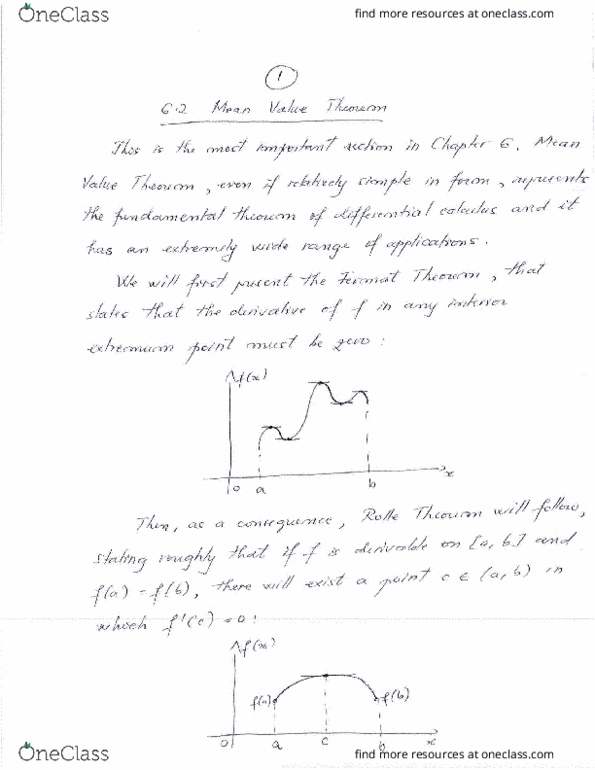 OneClass
find more resources at oneclass.com
1
6.2 Mean Value Theorem
This is the most important section in Chapter 6. Mean
Value Theorem, even if relatively simple in form, represents
the fundamental theorem of differential calculus and it
has an extremely wide range of applications.
We will first present the Fermat Theorem, that
states that the derivative of f in any interior
extremum point must be zero:
f(x)
0 a b x
Then, as a consequence, Rolle Theorem will follow,
stating roughly that if f is derivable on [a, b] and
f(a) = f(b), there will exist a point c ∈ (a, b) in
which f'(c) = 0:
f(x)
f(a) f(b)
0 a c b x
OneClass
find more resources at oneclass.com